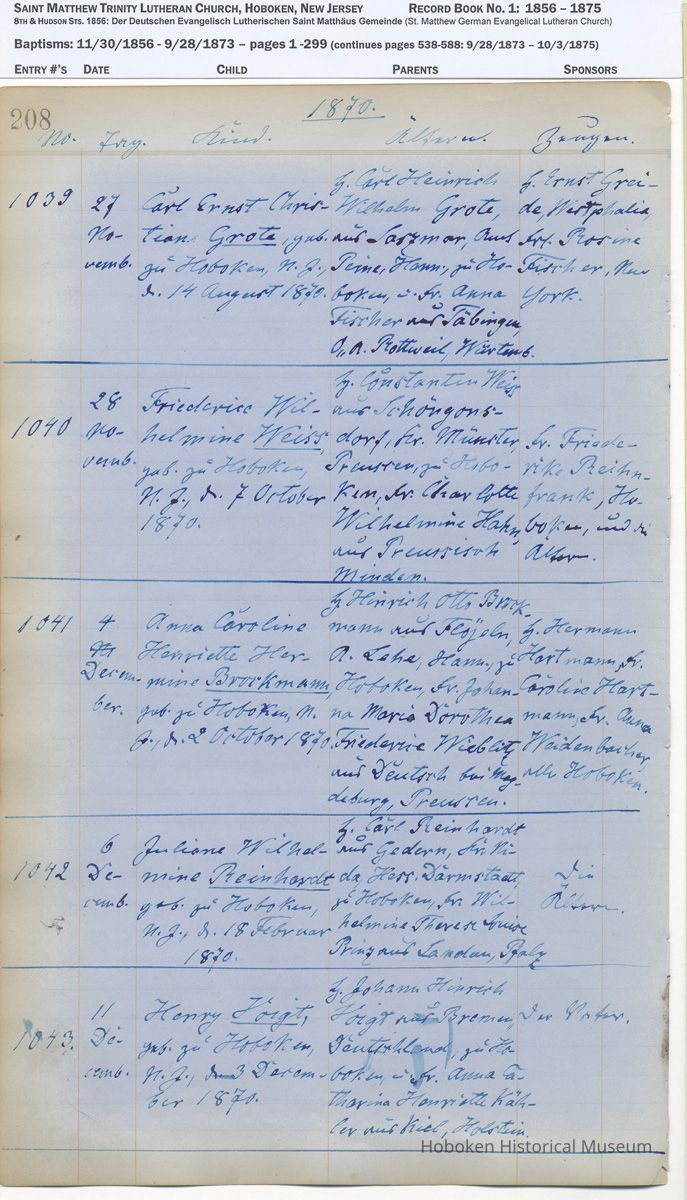 SAINT MATTHEW TRINITY LUTHERAN CHURCH, HOBOKEN, NEW JERSEY RECORD BOOK NO. 1: 1856 – 1875
8TH & HUDSON STS. 1856: Der Deutschen Evangelisch Lutherischen Saint Matthäus Gemeinde (St. Matthew German Evangelical Lutheran Church)
Baptisms: 11/30/1856 - 9/28/1873 – pages 1 -299 (continues pages 538-588: 9/28/1873 – 10/3/1875)
ENTRY #'S DATE CHILD PARENTS SPONSORS
208
1870.
No. Tag. Kind. Ältern. Zeugen.
1039
27
No-
vemb.
Carl Ernst Chris-
tian Grote, geb.
zu Hoboken, N. J.,
d. 14 August 1870.
H. Carl Heinrich
Wilhelm Grote,
aus Amt
Peine, Hann., zu Ho-
boken, u. Fr. Anna
Fischer aus Täbingen,
O. A. Rottweil, Würtemb.
H. Ernst Grei-
de, Westphalia,
Frl. Rosine
Fischer, New
York.
1040
28
No-
vemb.
Friederice Wil-
helmine Weiss,
geb. zu Hoboken,
N. J., d. 7 October
1870.
H. Constantin Weiss
aus Schöngons-
dorf, Kr. Münster,
Preussen, zu Hobo-
ken, Fr. Charlotte
Wilhelmine Hahn,
aus Preussisch
Minden.
Fr. Friede-
rike Reihn-
frank, Ho-
boken, und die
Ältern.
1041
4
Decem-
ber.
Anna Caroline
Henriette Her-
mine Brockmann,
geb. zu Hoboken, N.
J., d. 2 October 1870.
H. Hinrich Otto Brock-
mann aus Flögeln,
A. Lehe, Hann., zu
Hoboken, Fr. Johan-
na Maria Dorothea
Friederice Wieblitz
aus Deutsch bei Mag-
deburg, Preussen.
H. Hermann
Hartmann, Fr.
Caroline Hart-
mann, Fr. Anna
Weidenbacher,
alle Hoboken.
1042
6
De-
cemb.
Juliane Wilhel-
mine Reinhardt
geb. zu Hoboken,
N. J., d. 18 Februar
1870.
H. Carl Reinhardt
aus Gedern, Kr. Ni-
da, Hess. Darmstadt,
zu Hoboken, Fr. Wil-
helmine Therese Louise
Prinz aus Landau, Pfalz
Die
Ältern.
1043.
11
De-
cemb.
Henry Voigt,
geb. zu Hoboken,
N. J., d. 3 Decem-
ber 1870.
H. Johann Hinrich
Voigt aus Bremen,
Deutschland, zu Ho-
boken, u. Fr. Anna Ca-
tharina Henriette Käh-
ler aus Kiel, Holstein.
Der Vater.
Hoboken Historical Museum